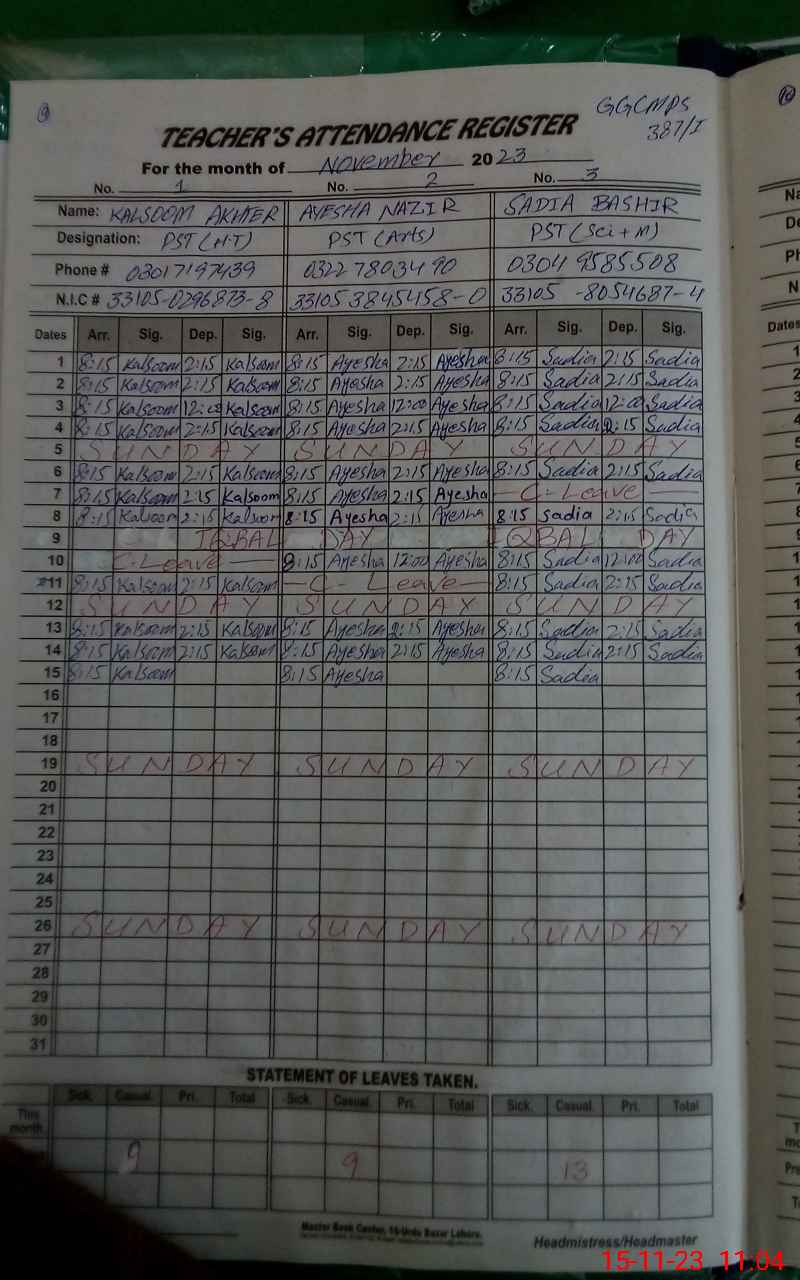 9
GGCMPS
387/I
10
TEACHER'S ATTENDANCE REGISTER
For the month of November 2023
No. 1 No. 2 No. 3
Name: KALSOOM AKHTER AYESHA NAZIR SADIA BASHIR
Designation: PST (H.T) PST (Arts) PST (Sci + M)
Phone # 03017197439 0322 7803490 0304 9585508
N.I.C # 33105-0296873-8 33105 3845458-0 33105 -8054687-4
Dates Arr. Sig. Dep. Sig. Arr. Sig. Dep. Sig. Arr. Sig. Dep. Sig.
1 8:15 Kalsoom 2:15 Kalsoom 8:15 Ayesha 2:15 Ayesha 8:15 Sadia 2:15 Sadia
2 8:15 Kalsoom 2:15 Kalsoom 8:15 Ayesha 2:15 Ayesha 8:15 Sadia 2:15 Sadia
3 8:15 Kalsoom 12:00 Kalsoom 8:15 Ayesha 12:00 Ayesha 8:15 Sadia 12:00 Sadia
4 8:15 Kalsoom 2:15 Kalsoom 8:15 Ayesha 2:15 Ayesha 8:15 Sadia 2:15 Sadia
5 SUNDAY SUNDAY SUNDAY
6 8:15 Kalsoom 2:15 Kalsoom 8:15 Ayesha 2:15 Ayesha 8:15 Sadia 2:15 Sadia
7 8:15 Kalsoom 2:15 Kalsoom 8:15 Ayesha 2:15 Ayesha — C-Leave —
8 8:15 Kalsoom 2:15 Kalsoom 8:15 Ayesha 2:15 Ayesha 8:15 Sadia 2:15 Sadia
9 IQBAL DAY IQBAL DAY
10 C-Leave — 8:15 Ayesha 12:00 Ayesha 8:15 Sadia 12:00 Sadia
11 8:15 Kalsoom 2:15 Kalsoom — C- Leave — 8:15 Sadia 2:15 Sadia
12 SUNDAY SUNDAY SUNDAY
13 8:15 Kalsoom 2:15 Kalsoom 8:15 Ayesha 2:15 Ayesha 8:15 Sadia 2:15 Sadia
14 8:15 Kalsoom 2:15 Kalsoom 8:15 Ayesha 2:15 Ayesha 8:15 Sadia 2:15 Sadia
15 8:15 Kalsoom 8:15 Ayesha 8:15 Sadia
16
17
18
19 SUNDAY SUNDAY SUNDAY
20
21
22
23
24
25
26 SUNDAY SUNDAY SUNDAY
27
28
29
30
31
STATEMENT OF LEAVES TAKEN.
Sick. Casual. Pri. Total Sick. Casual. Pri. Total Sick. Casual. Pri. Total
This month
9 9 13
Master Book Center, 16-Urdu Bazar Lahore.
Headmistress/Headmaster
15-11-23 11:04